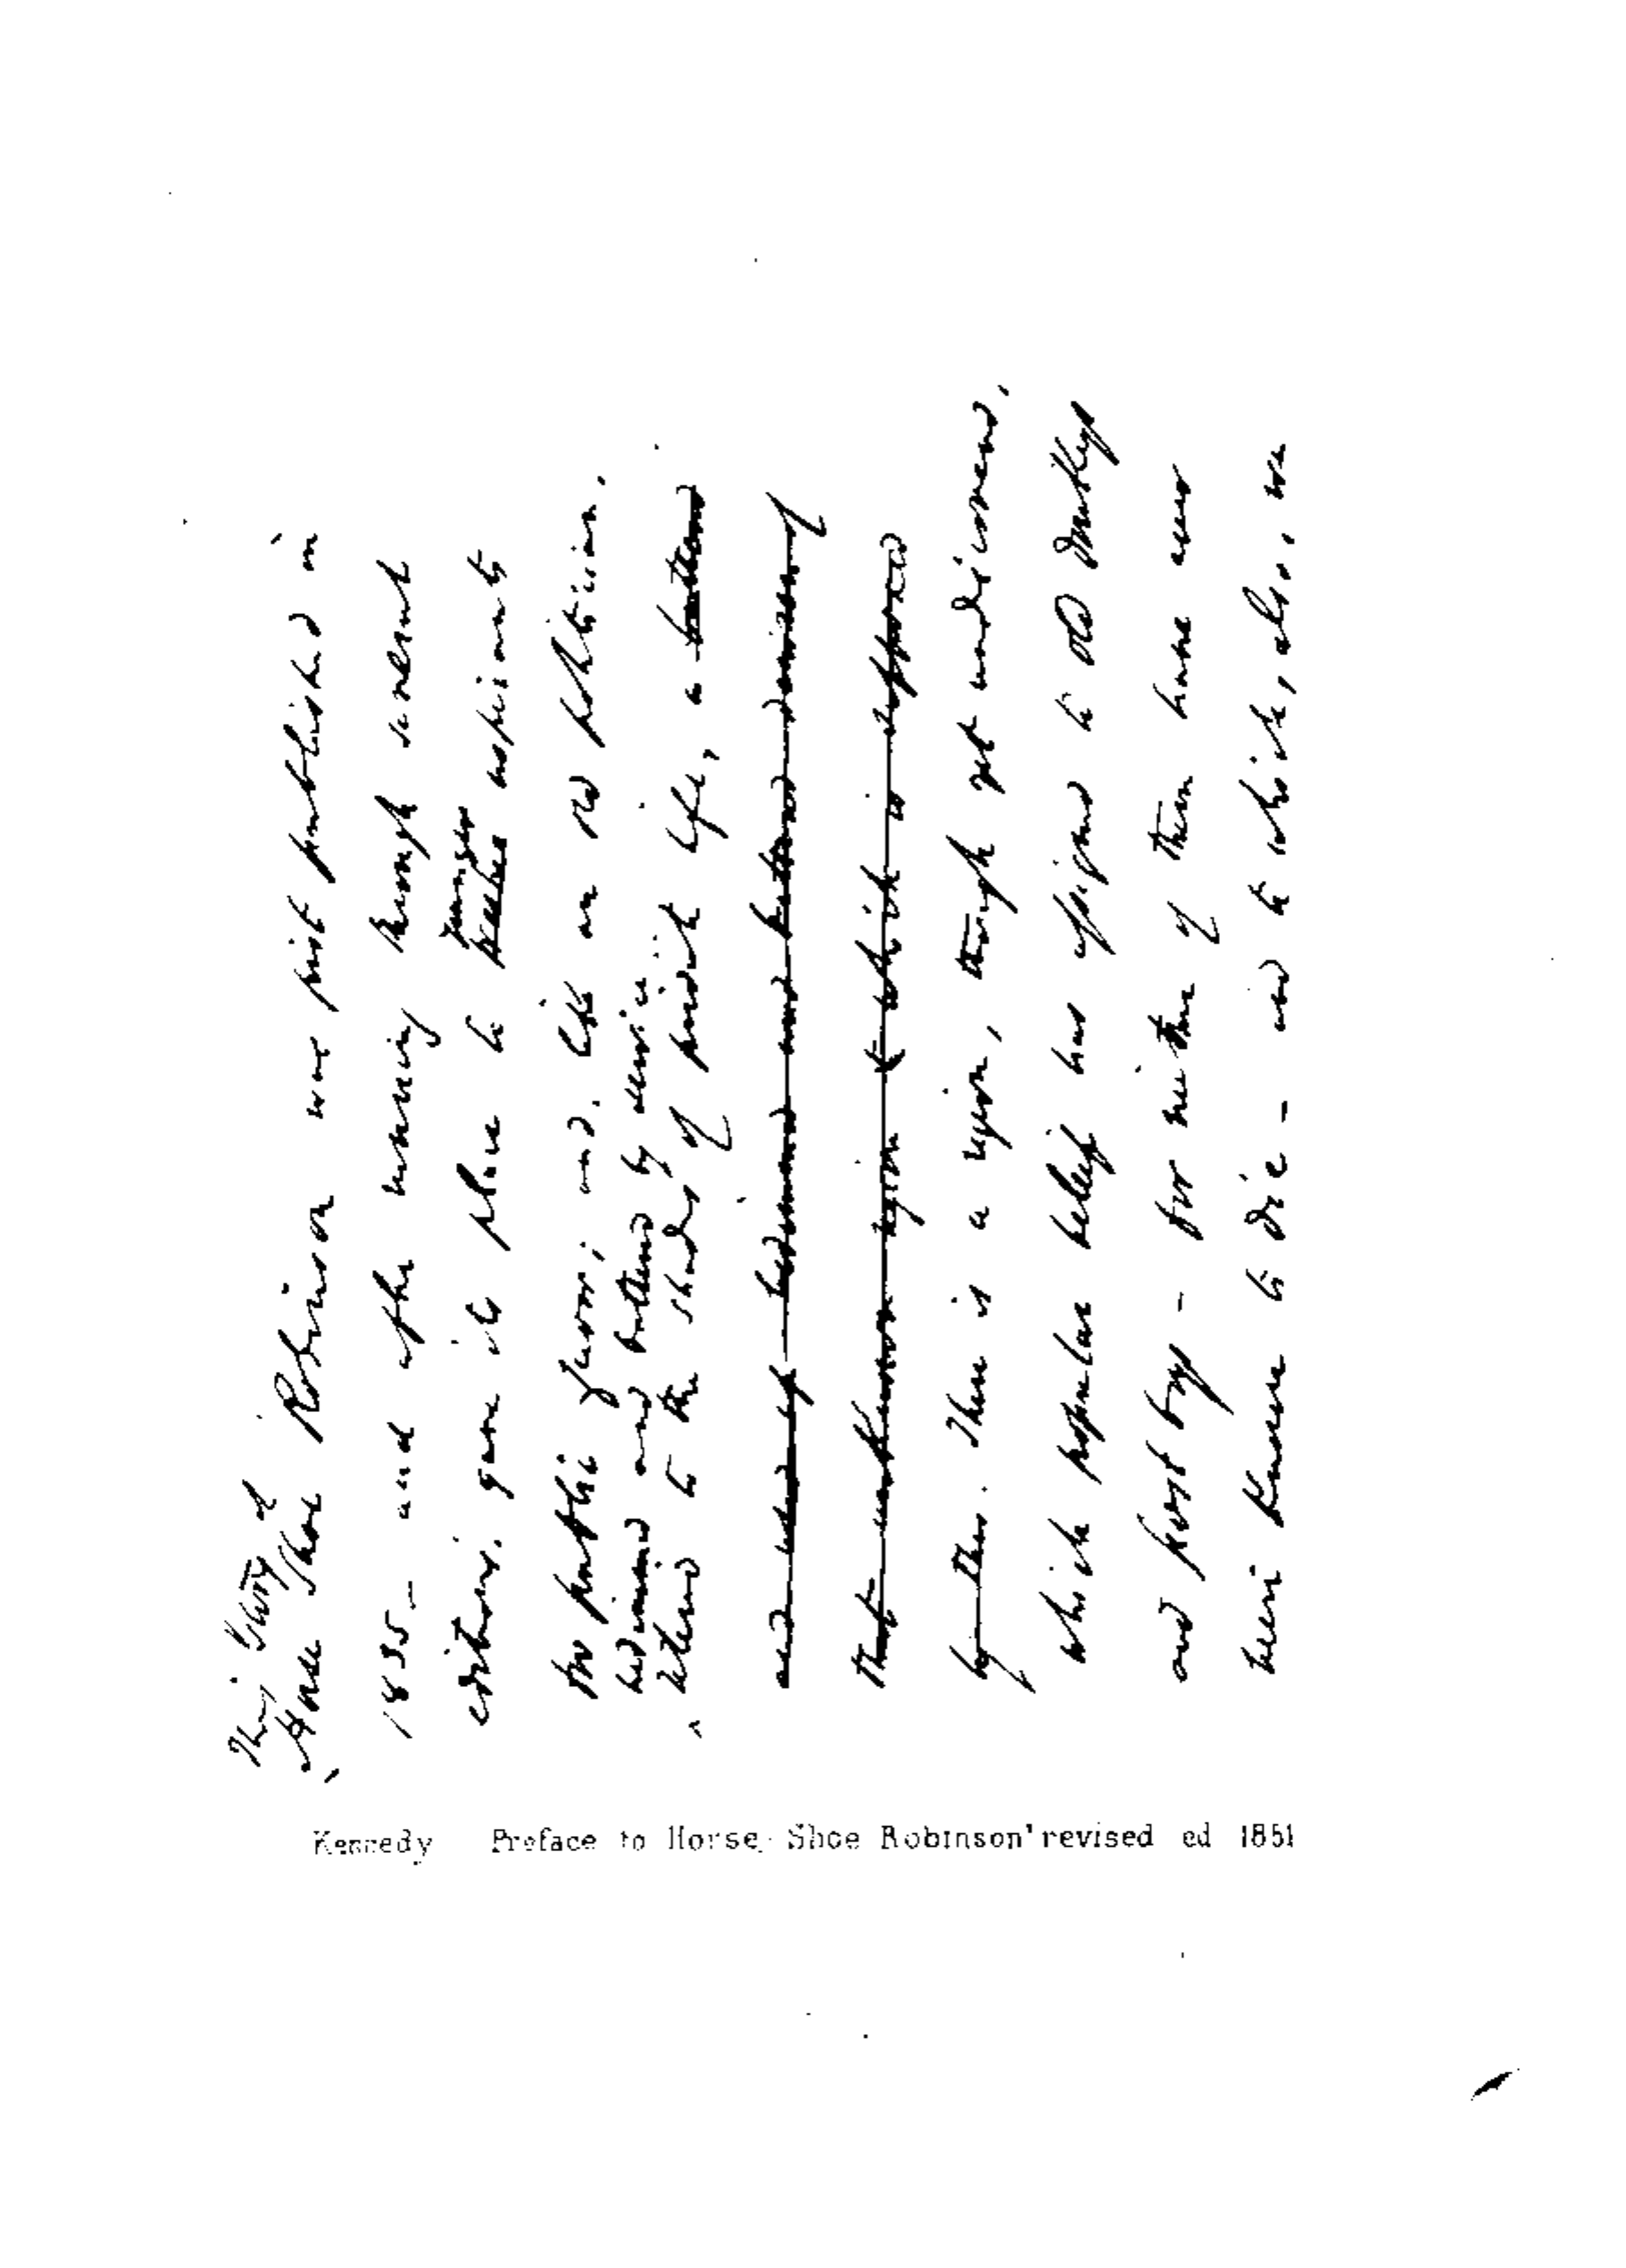 This Story of
Horse Shoe Robinson was first published in
1835 - and after running through several
editions, gave its place to
younger
aspirants
for public favour; and, like an old politician,
bedimmed and battered by service
retired to the shades of private life, a battered
and
that unknown region to which is supposed
by the. There is a region, though yet undiscovered,
which popular belief has assigned to old donkeys
and post boys - for neither of them have ever
been known to die - and to which, also, we
Kennedy Preface to Horse Shoe Robinson' revised ed 1851